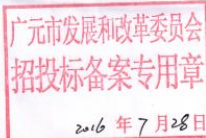 广元市发展和改革委员会
招投标备案专用章
2016年7月28日